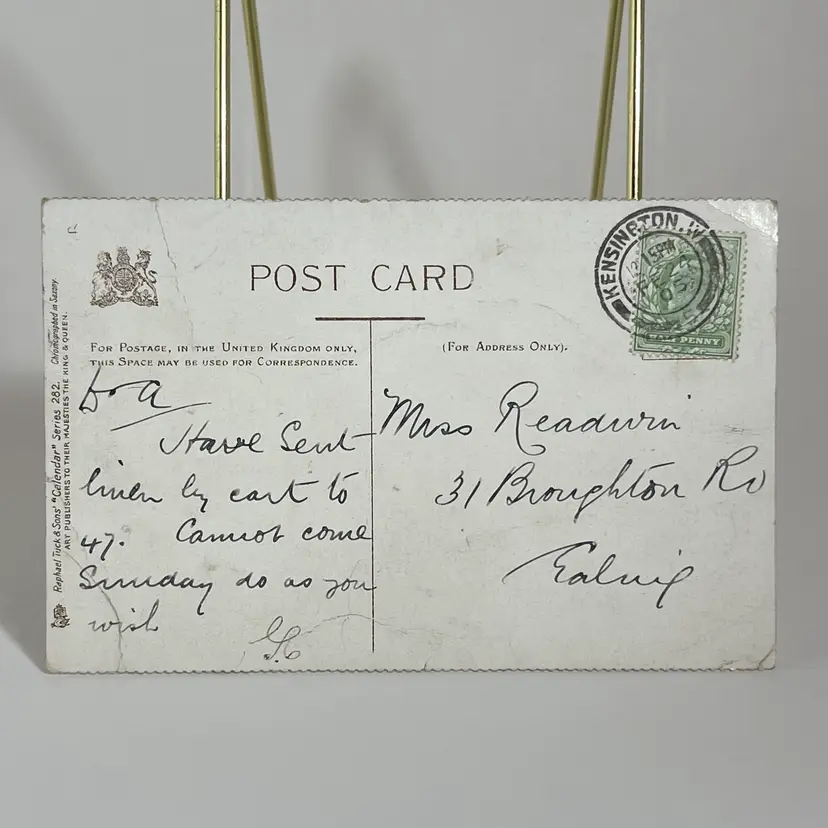 POST CARD
FOR POSTAGE, IN THE UNITED KINGDOM ONLY,
THIS SPACE MAY BE USED FOR CORRESPONDENCE.
(FOR ADDRESS ONLY).
Have Sent
linen by cart to
47. Cannot come
Sunday do as you
wish
Miss Readwin
31 Broughton Rd
Ealing
KENSINGTON. W
12 15 PM
05
HALF PENNY
Raphael Tuck & Sons' "Calendar" Series 282. Chromographed in Saxony.
ART PUBLISHERS TO THEIR MAJESTIES THE KING & QUEEN.